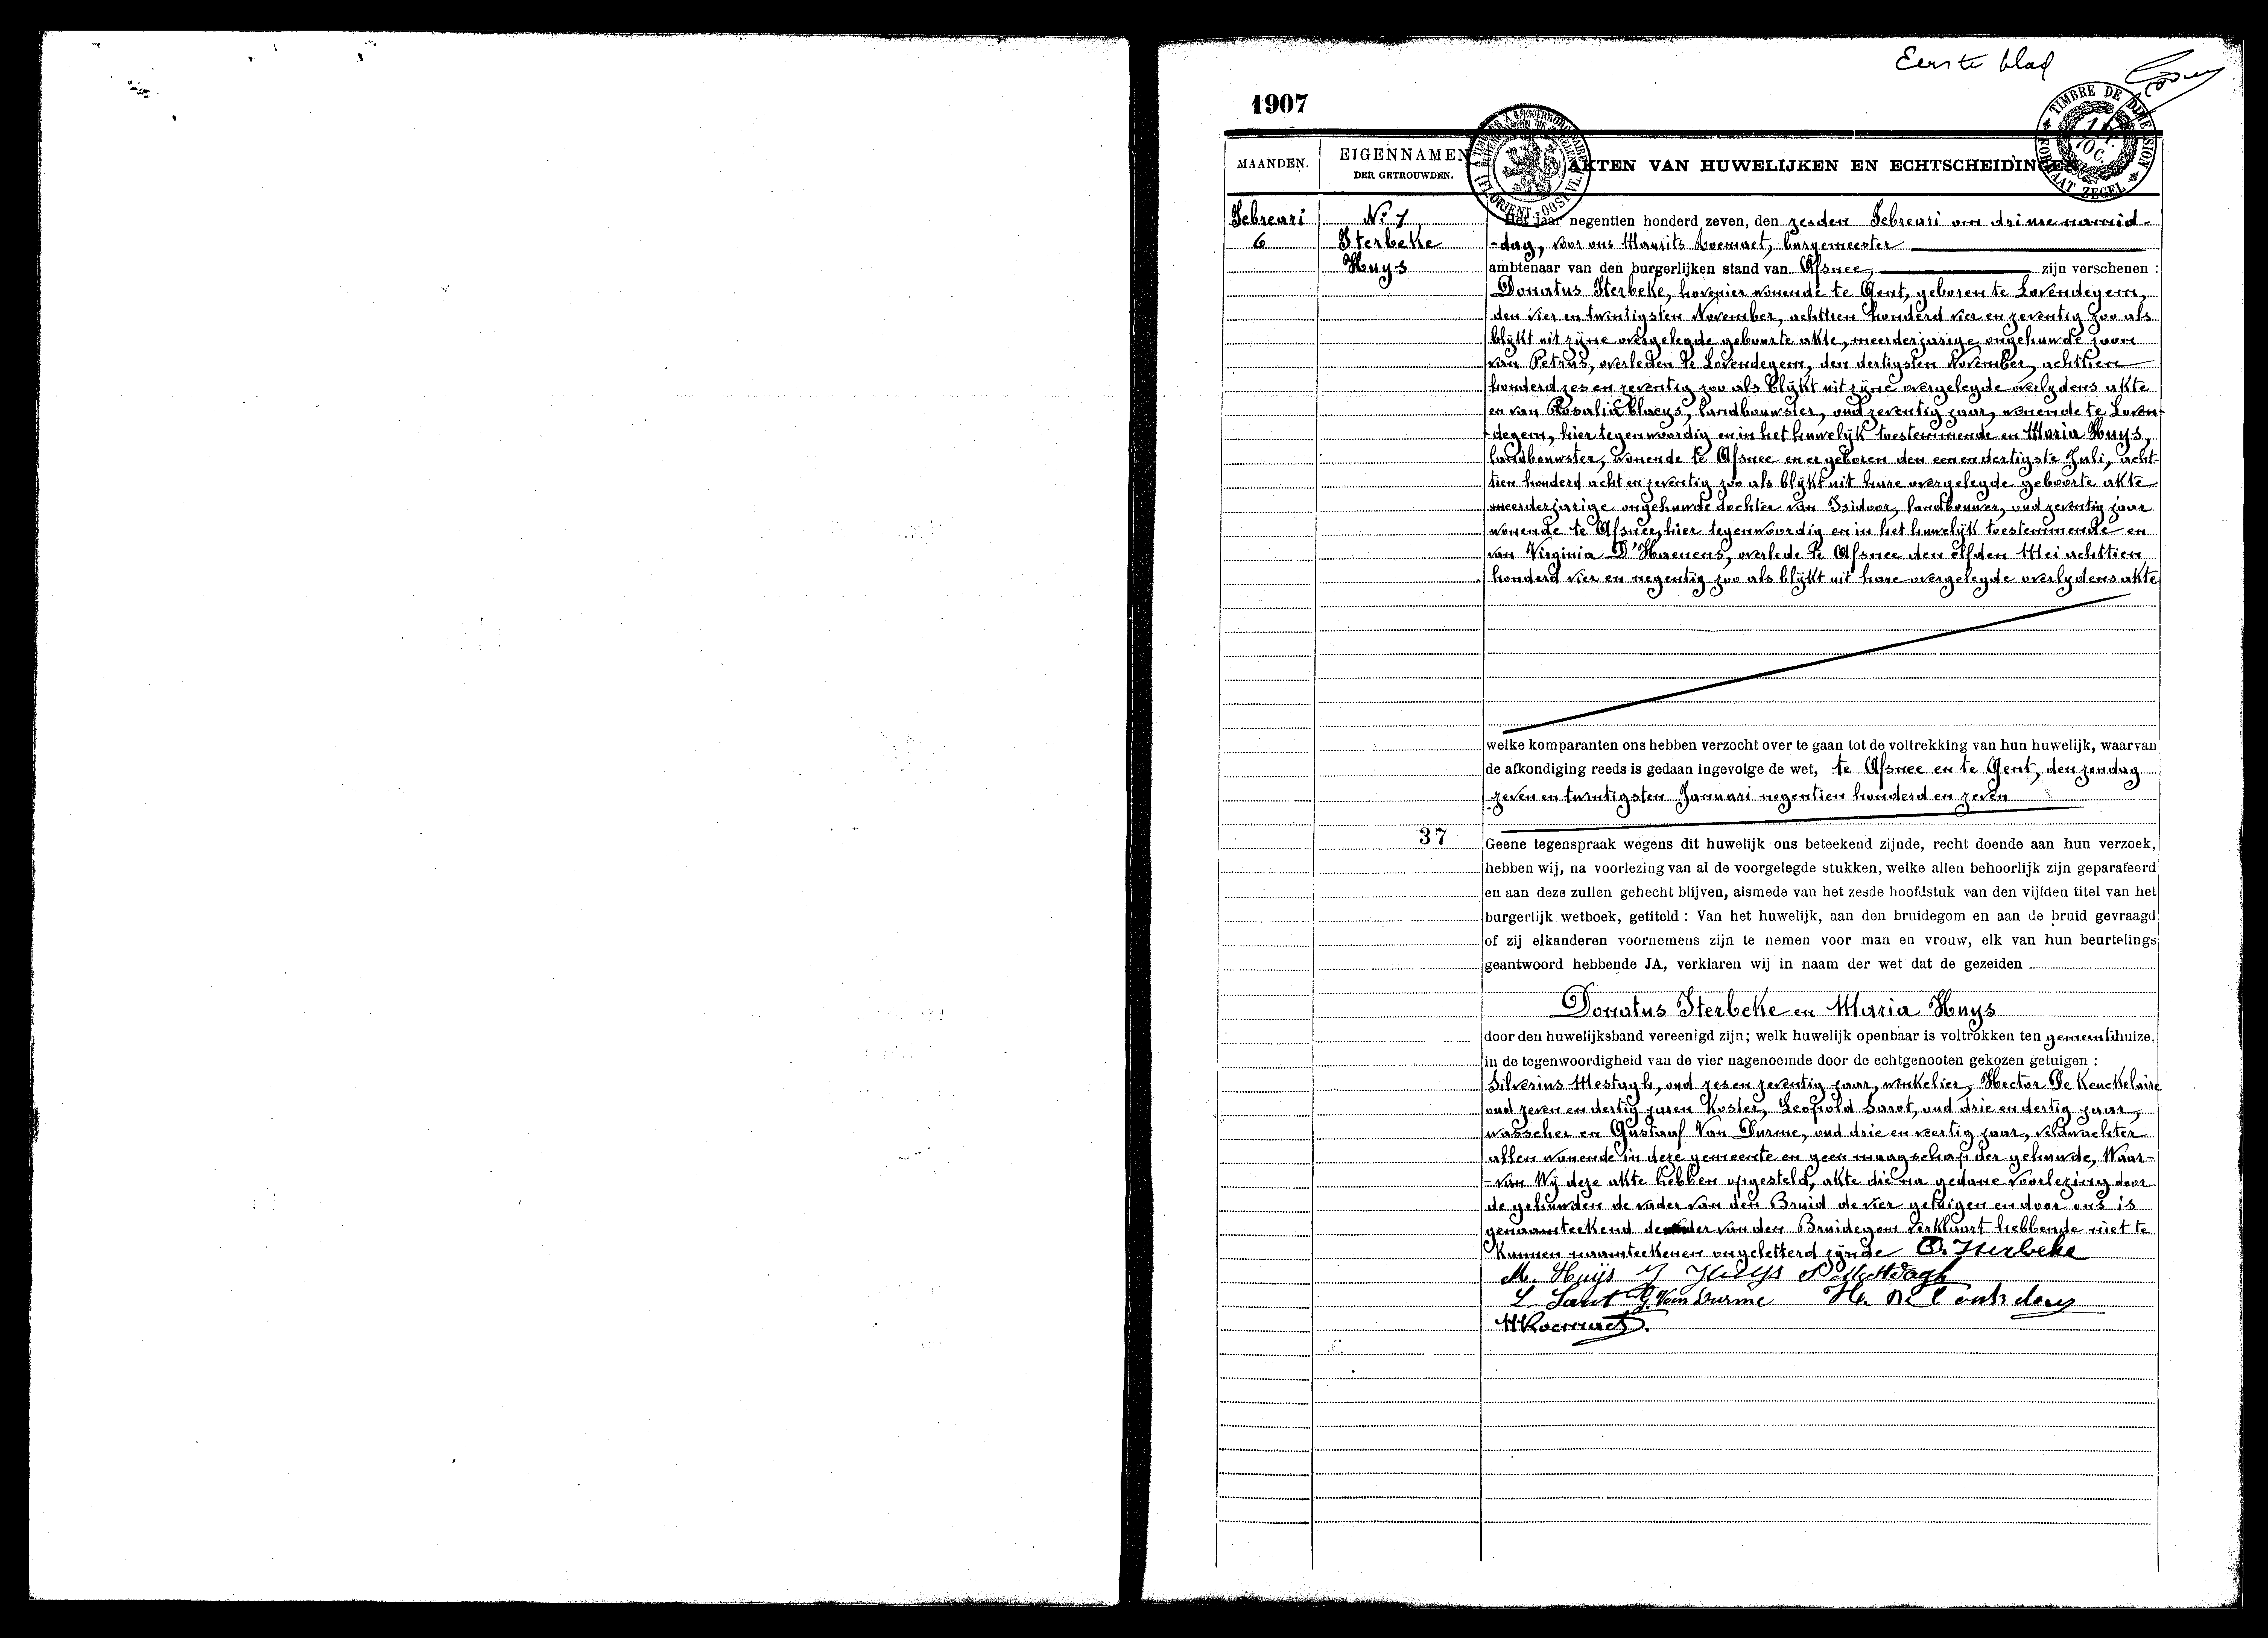 Eerste blad
1907
TIMBRE DE DIMENSION
FORMAAT ZEGEL
MAANDEN.
EIGENNAMEN
DER GETROUWDEN.
AKTEN VAN HUWELIJKEN EN ECHTSCHEIDINGEN
Februari
6
N.º 1
Sterbeke
Huys
Het jaar negentien honderd zeven, den zesden Februari om drie ure namid-
-dag, voor ons Maurits Roemaet, burgemeester
ambtenaar van den burgerlijken stand van Afsnee, zijn verschenen :
Donatus Sterbeke, hovenier wonende te Gent, geboren te Lovendegem,
den vier en twintigsten November, achttien honderd vier en zeventig zoo als
blijkt uit zijne overgelegde geboorte akte, meerderjarige ongehuwde zoon
van Petrus, overleden te Lovendegem, den dertigsten November, achttien
honderd zes en zeventig zoo als blijkt uit zijne overgelegde overlydens akte
en van Rosalia Claeys, landbouwster, oud zeventig jaar, wonende te Loven-
-degem, hier tegenwoordig en in het huwelijk toestemmende en Maria Huys,
landbouwster, wonende te Afsnee en er geboren den een en dertigste Juli, acht-
tien honderd acht en zeventig zoo als blijkt uit hare overgelegde geboorte akte
meerderjarige ongehuwde dochter van Isidoor, landbouwer, oud zeventig jaar
wonende te Afsnee, hier tegenwoordig en in het huwelijk toestemmende en
van Virginia D'Haenens, overlede te Afsnee den elfden Mei achttien
honderd vier en negentig zoo als blijkt uit hare overgelegde overlydens akte
welke komparanten ons hebben verzocht over te gaan tot de voltrekking van hun huwelijk, waarvan
de afkondiging reeds is gedaan ingevolge de wet, te Afsnee en te Gent, den zondag
zeven en twintigsten Januari negentien honderd en zeven
37
Geene tegenspraak wegens dit huwelijk ons beteekend zijnde, recht doende aan hun verzoek,
hebben wij, na voorlezing van al de voorgelegde stukken, welke allen behoorlijk zijn geparafeerd
en aan deze zullen gehecht blijven, alsmede van het zesde hoofdstuk van den vijfden titel van het
burgerlijk wetboek, getiteld : Van het huwelijk, aan den bruidegom en aan de bruid gevraagd
of zij elkanderen voornemens zijn te nemen voor man en vrouw, elk van hun beurtelings
geantwoord hebbende JA, verklaren wij in naam der wet dat de gezeiden
Donatus Sterbeke en Maria Huys
door den huwelijksband vereenigd zijn; welk huwelijk openbaar is voltrokken ten gemeentehuize.
in de tegenwoordigheid van de vier nagenoemde door de echtgenooten gekozen getuigen :
Silverius Mestagh, oud zes en zeventig jaar, winkelier, Hector De Keuckelaire
oud zeven en dertig jaren Koster, Leopold Sarot, oud drie en dertig jaar,
wasscher en Gustaaf Van Durme, oud drie en veertig jaar, veldwachter
allen wonende in deze gemeente en geen maagschap der gehuwde, Waar-
-van Wij deze akte hebben opgesteld, akte die na gedane voorlezing door
de gehuwden de vader van den Bruid de vier getuigen en door ons is
genaamteekend de der van den Bruidegom verklaart hebbende niet te
Kunnen naamteekenen ongeletterd zijnde D. Sterbeke
M. Huijs Huys S Mestdagh
L. Sarot G. Van Durme
MRoemaet.